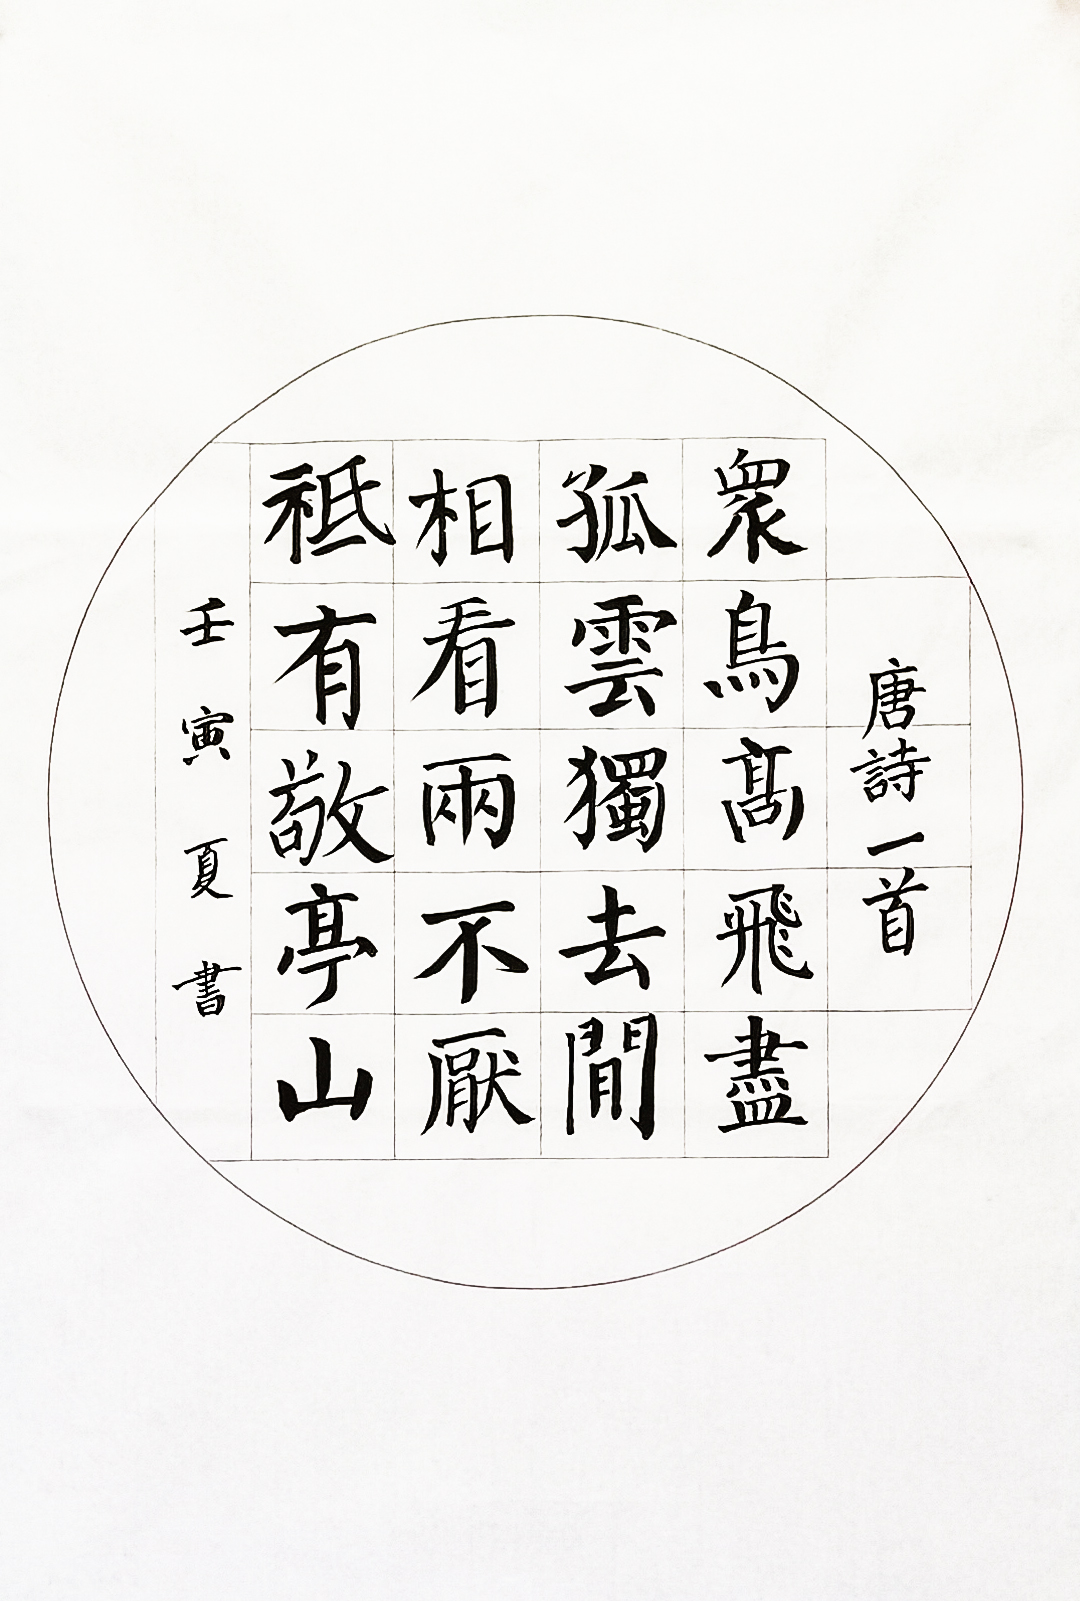 唐詩一首
衆鳥髙飛盡
孤雲獨去閒
相看兩不厭
祗有敬亭山
壬寅夏書